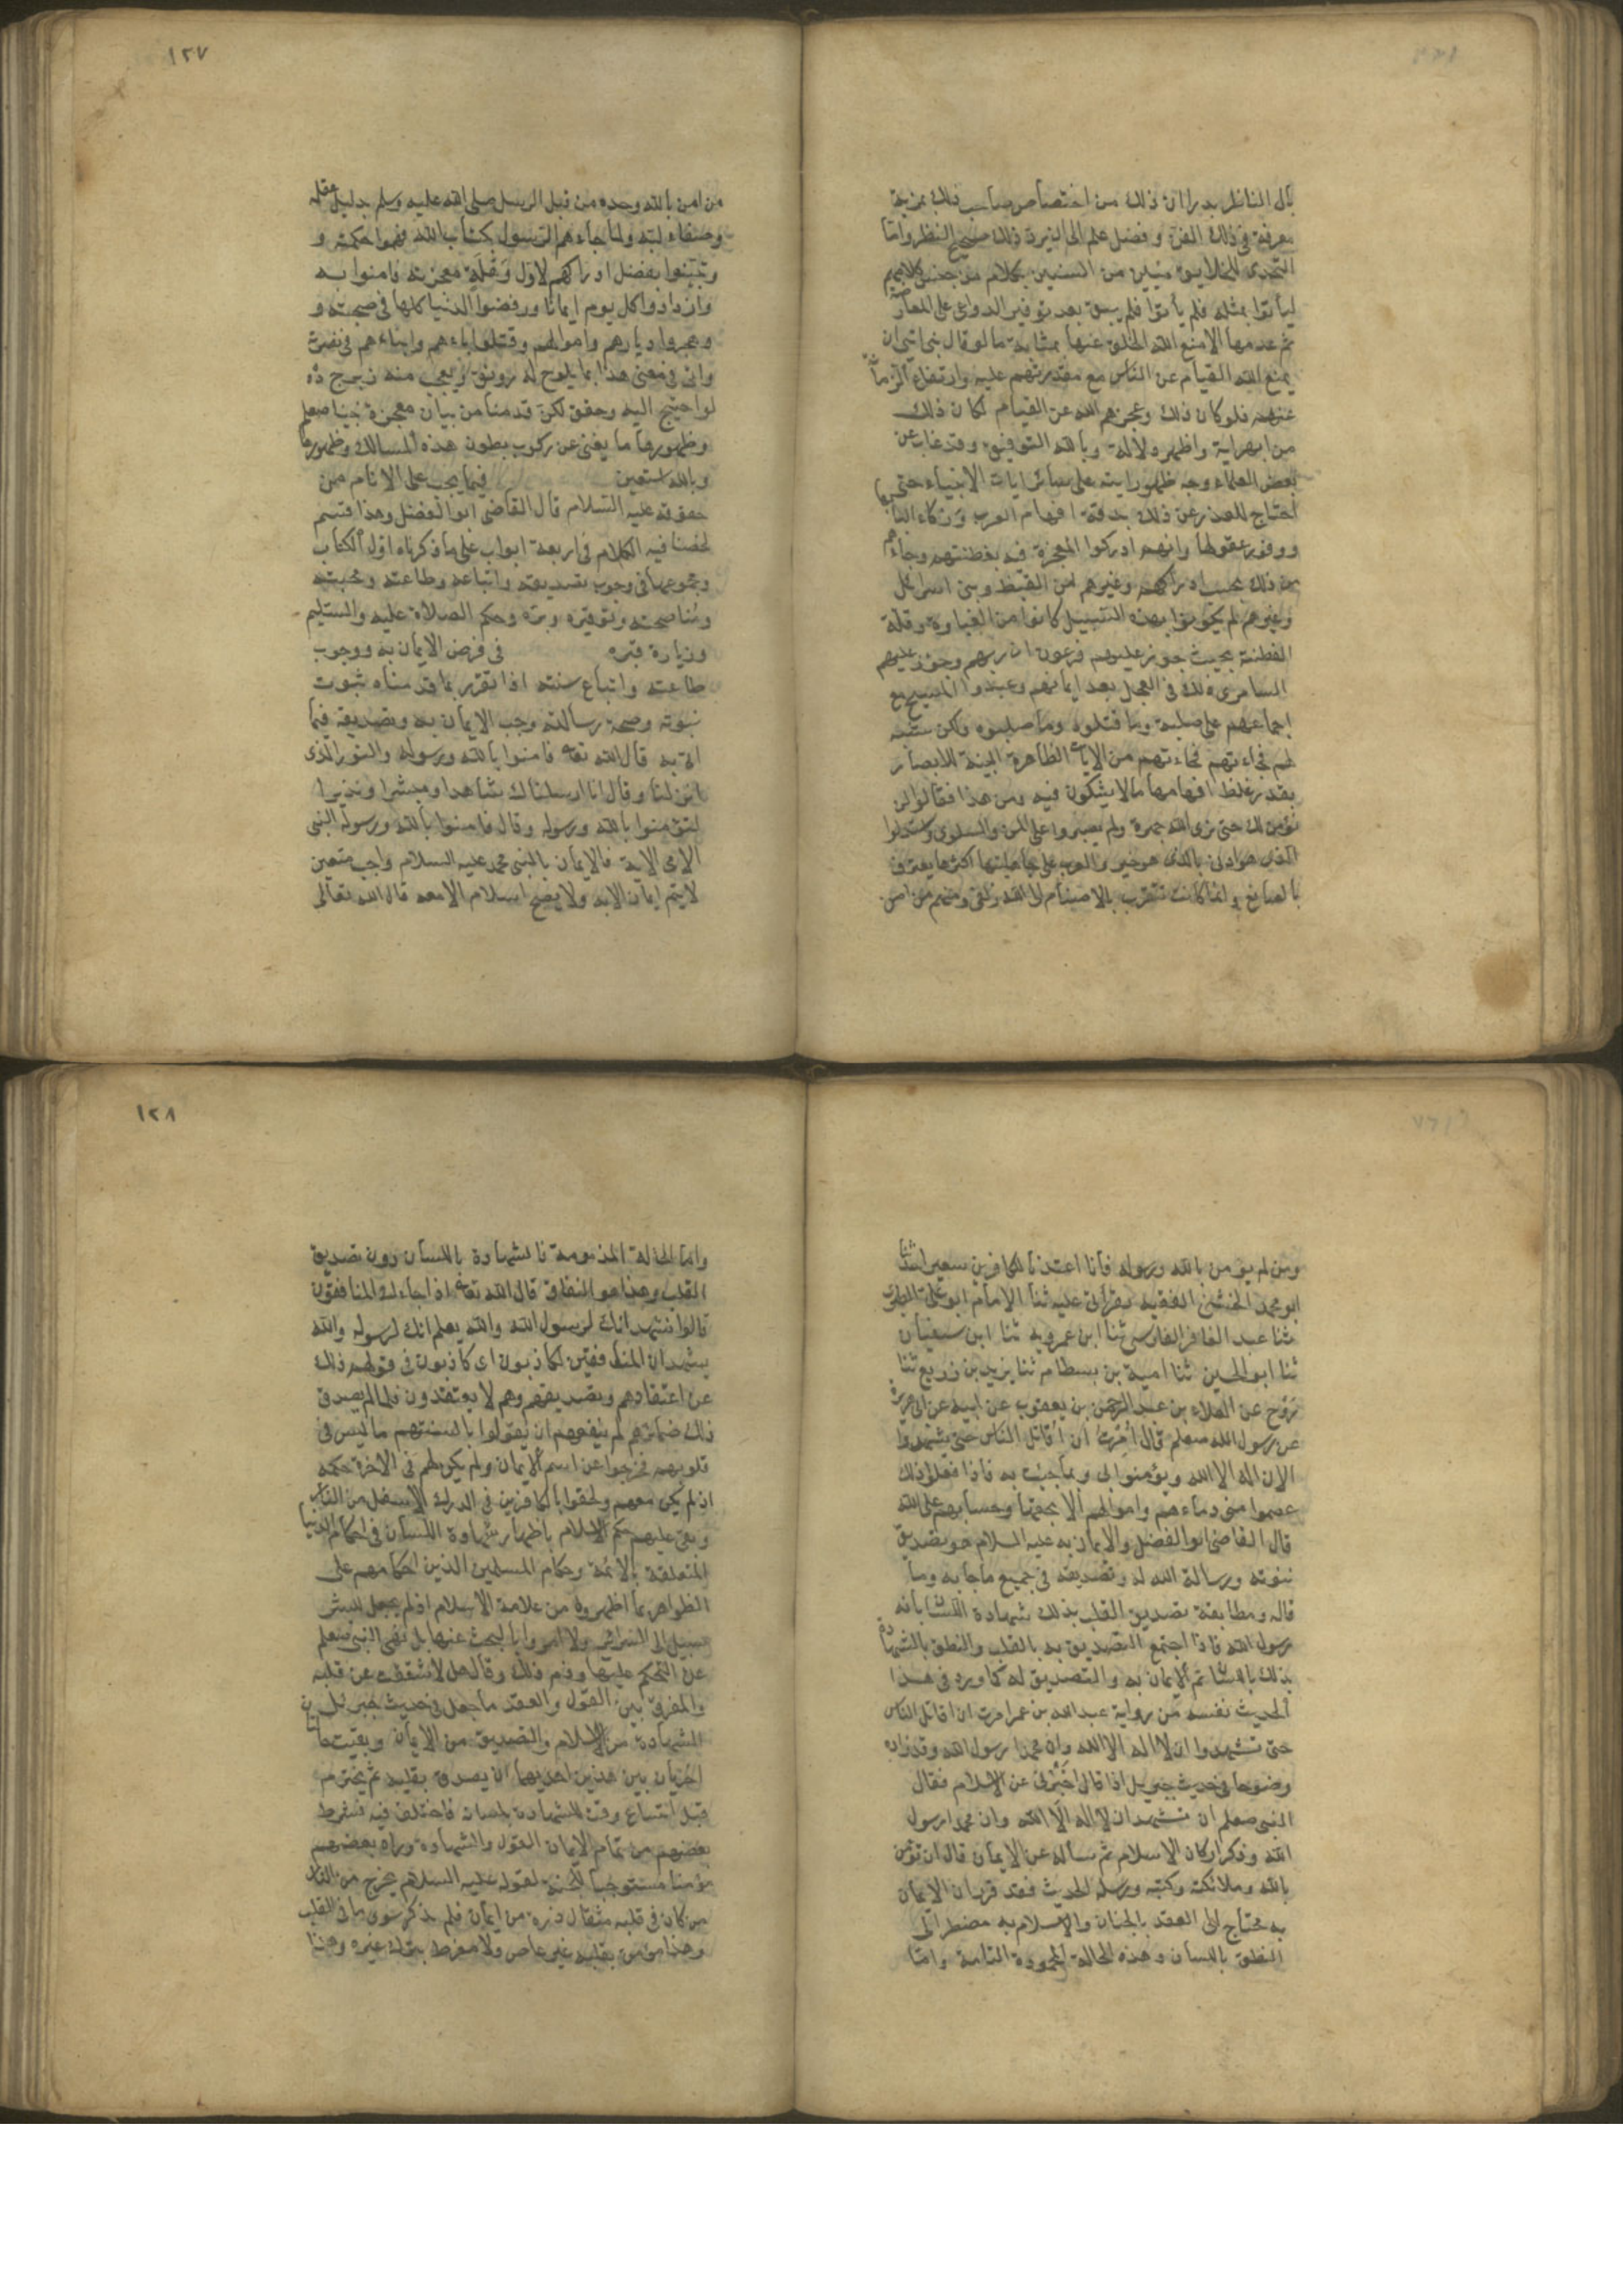 بال الناظر بدرا ان ذلك من اختصاص صاحب ذلك بمزية
معرفة في ذلك الفن وفضل علم الى ان يرد ذلك صحيح النظر واما
التحدى للخلايق مئين من السنين بكلام من جنس كلامهم
ليأتوا بمثله فلم يأتوا فلم يبق بعد توفير الدواعى على المعارضة
ثم عدمها الا منع الله الخلق عنها بمثابة ما لو قال نبى ايتى ان
يمنع الله القيام عن الناس مع مقدرتهم عليه وارتفاع الزمانة
عنهم فلو كان ذلك وعجزهم الله عن القيام لكان ذلك
من ابهر اية واظهر دلالة وبالله التوفيق وقد غاب عن
بعض العلماء وجه ظهور ايته على سائر ايات الانبياء حتى
احتاج للعذر عن ذلك بدقة افهام العرب وذكاء البابها
ووفور عقولها وانهم ادركوا المعجزة فيه بفطنتهم وجاءهم
من ذلك بحسب ادراكهم وغيرهم من القبط وبنى اسرائل
وغيرهم لم يكونوا بهذه السبيل كانوا من الغباوة وقلة
الفطنة بحيث جوز عليهم فرعون انه ربهم وجوز عليهم
السامرى ذلك في العجل بعد ايمانهم وعبدوا المسيح مع
اجماعهم على صلبه وما قتلوه وما صلبوه ولكن شبه
لهم فجاءتهم من الايات الظاهرة البينة للابصار
بقدر غلظ افهامها ما لا يشكون فيه ومن هذا فقالوا لن
نؤمن لك حتى نرى الله جهرة ولم يصبروا على المن والسلوى واستبدلوا
الذى هو ادنى بالذى هو خير والعرب على جاهليتها اكثرها يعترف
بالصانع وانما كانت تتقرب بالاصنام الى الله زلفى ومنهم من امن
١٢٧
من امن بالله وحده من قبل الرسول صلى الله عليه وسلم بدليل عقله
وصفاء لبه ولما جاءهم الرسول بكتاب الله فهموا حكمته و
وتبينوا بفضل ادراكهم لاول وهلة معجزته فامنوا به
وازدادوا كل يوم ايمانا ورفضوا الدنيا كلها في صحبته و
وهجروا ديارهم واموالهم وقتلوا اباءهم وابناءهم في نصرته
واتى في معنى هذا بما يلوح له رونق ويعجب منه زبرج
لو احتيج اليه وحقق لكن قدمنا من بيان معجزة نبينا صعلم
وظهورها ما يغنى عن ركوب بطون هذه المسالك وظهورها
وبالله استعين فيما يجب على الانام من
حقوقه عليه السلام قال القاضى ابو الفضل وهذا قسم
لخصنا فيه الكلام في اربعة ابواب على ما ذكرناه اول الكتاب
ومجموعها في وجوب تصديقه واتباعه وطاعته ومحبته
ومناصحته وتوقيره وبره وحكم الصلاة عليه والتسليم
وزيارة قبره في فرض الايمان به ووجوب
طاعته واتباع سنته اذا تقرر بما قدمناه ثبوت
نبوته وصحة رسالته وجب الايمان به وتصديقه فيما
اتى به قال الله تعا فامنوا بالله ورسوله والنور الذى
انزلنا وقال انا ارسلناك شاهدا ومبشرا ونذيرا
لتؤمنوا بالله ورسوله وقال فامنوا بالله ورسوله النبى
الامى الاية فالايمان بالنبى محمد عليه السلام واجب متعين
لا يتم ايمان الا به ولا يصح اسلام الا معه قال الله تعالى
ومن لم يؤمن بالله ورسوله فانا اعتدنا للكافرين سعيرا حدثنا
ابو محمد الخشنى الفقيه بقرأتى عليه ثنا الامام ابو على الطبرى
ثنا عبد الغافر الفارسى ثنا ابن عمرويه ثنا ابن سفيان
ثنا ابو الحسين ثنا امية بن بسطام ثنا يزيد بن زريع ثنا
روح عن العلاء بن عبد الرحمن بن يعقوب عن ابيه عن ابى هريرة
عن رسول الله صعلم قال امرت ان اقاتل الناس حتى يشهدوا
الا ان اله الا الله ويؤمنوا بى وبما جئت به فاذا فعلوا ذلك
عصموا منى دماءهم واموالهم الا بحقها وحسابهم على الله
قال القاضى ابو الفضل والايمان به عليه السلام هو تصديق
نبوته ورسالة الله له وتصديقه في جميع ما جا به وما
قاله ومطابقة تصديق القلب بذلك شهادة اللسان بانه
رسول الله فاذا اجتمع التصديق به بالقلب والنطق بالشهادة
بذلك باللسان تم الايمان به والتصديق له كما ورد في هذا
الحديث نفسه من رواية عبد الله بن عمر امرت ان اقاتل الناس
حتى تشهدوا ان لا اله الا الله وان محمدا رسول الله وقد زاده
وضوحا في حديث جبريل اذا قال اخبرنى عن الاسلام فقال
النبى صعلم ان تشهد ان لا اله الا الله وان محمدا رسول
الله وذكر اركان الاسلام ثم سأله عن الايمان قال ان تؤمن
بالله وملائكته وكتبه ورسله الحديث فقد قرر ان الايمان
به محتاج الى العقد بالجنان والاسلام به مضطر الى
النطق باللسان وهذه الحالة المحمودة التامة واما
١٢٨
واما الحالة المذمومة فالشهادة باللسان دون تصديق
القلب وهذا هو النفاق قال الله تعا اذا جاءك المنافقون
قالوا نشهد انك لرسول الله والله يعلم انك لرسوله والله
يشهد ان المنافقين لكاذبون اى كاذبون في قولهم ذلك
عن اعتقادهم وتصديقهم وهم لا يعتقدون فلما لم يصدق
ذلك ضمائرهم لم ينفعهم ان يقولوا بالسنتهم ما ليس في
قلوبهم فخرجوا عن اسم الايمان ولم يكن لهم في الاخرة حكمه
اذ لم يكن معهم ولحقوا بالكافرين في الدرك الاسفل من النار
وبقى عليهم حكم الاسلام باظهار شهادة اللسان في احكام الدنيا
المتعلقة بالائمة وحكام المسلمين الذين احكامهم على
الظواهر بما اظهروه من علامة الاسلام اذ لم يجعل للبشر
سبيل الى السرائر ولا امروا بالبحث عنها بل نهى النبى صعلم
عن التحكم عليها وذم ذلك وقال هل لا شققت عن قلبه
والفرق بين القول والعقد ما جعل في حديث جبريل
الشهادة من الاسلام والتصديق من الايمان وبقيت حالتان
اخريان بين هذين احديهما ان يصدق بقلبه ثم يخترم
قبل اتساع وقت للشهادة بلسانه فاختلف فيه فشرط
بعضهم من تمام الايمان القول والشهادة وراه بعضهم
مؤمنا مستوجبا للجنة لقوله عليه السلام يخرج من النار
من كان في قلبه مثقال ذرة من ايمان فلم يذكر سوى ما في القلب
وهذا مؤمن بقلبه غير عاص ولا مفرط بترك غيره وهذا